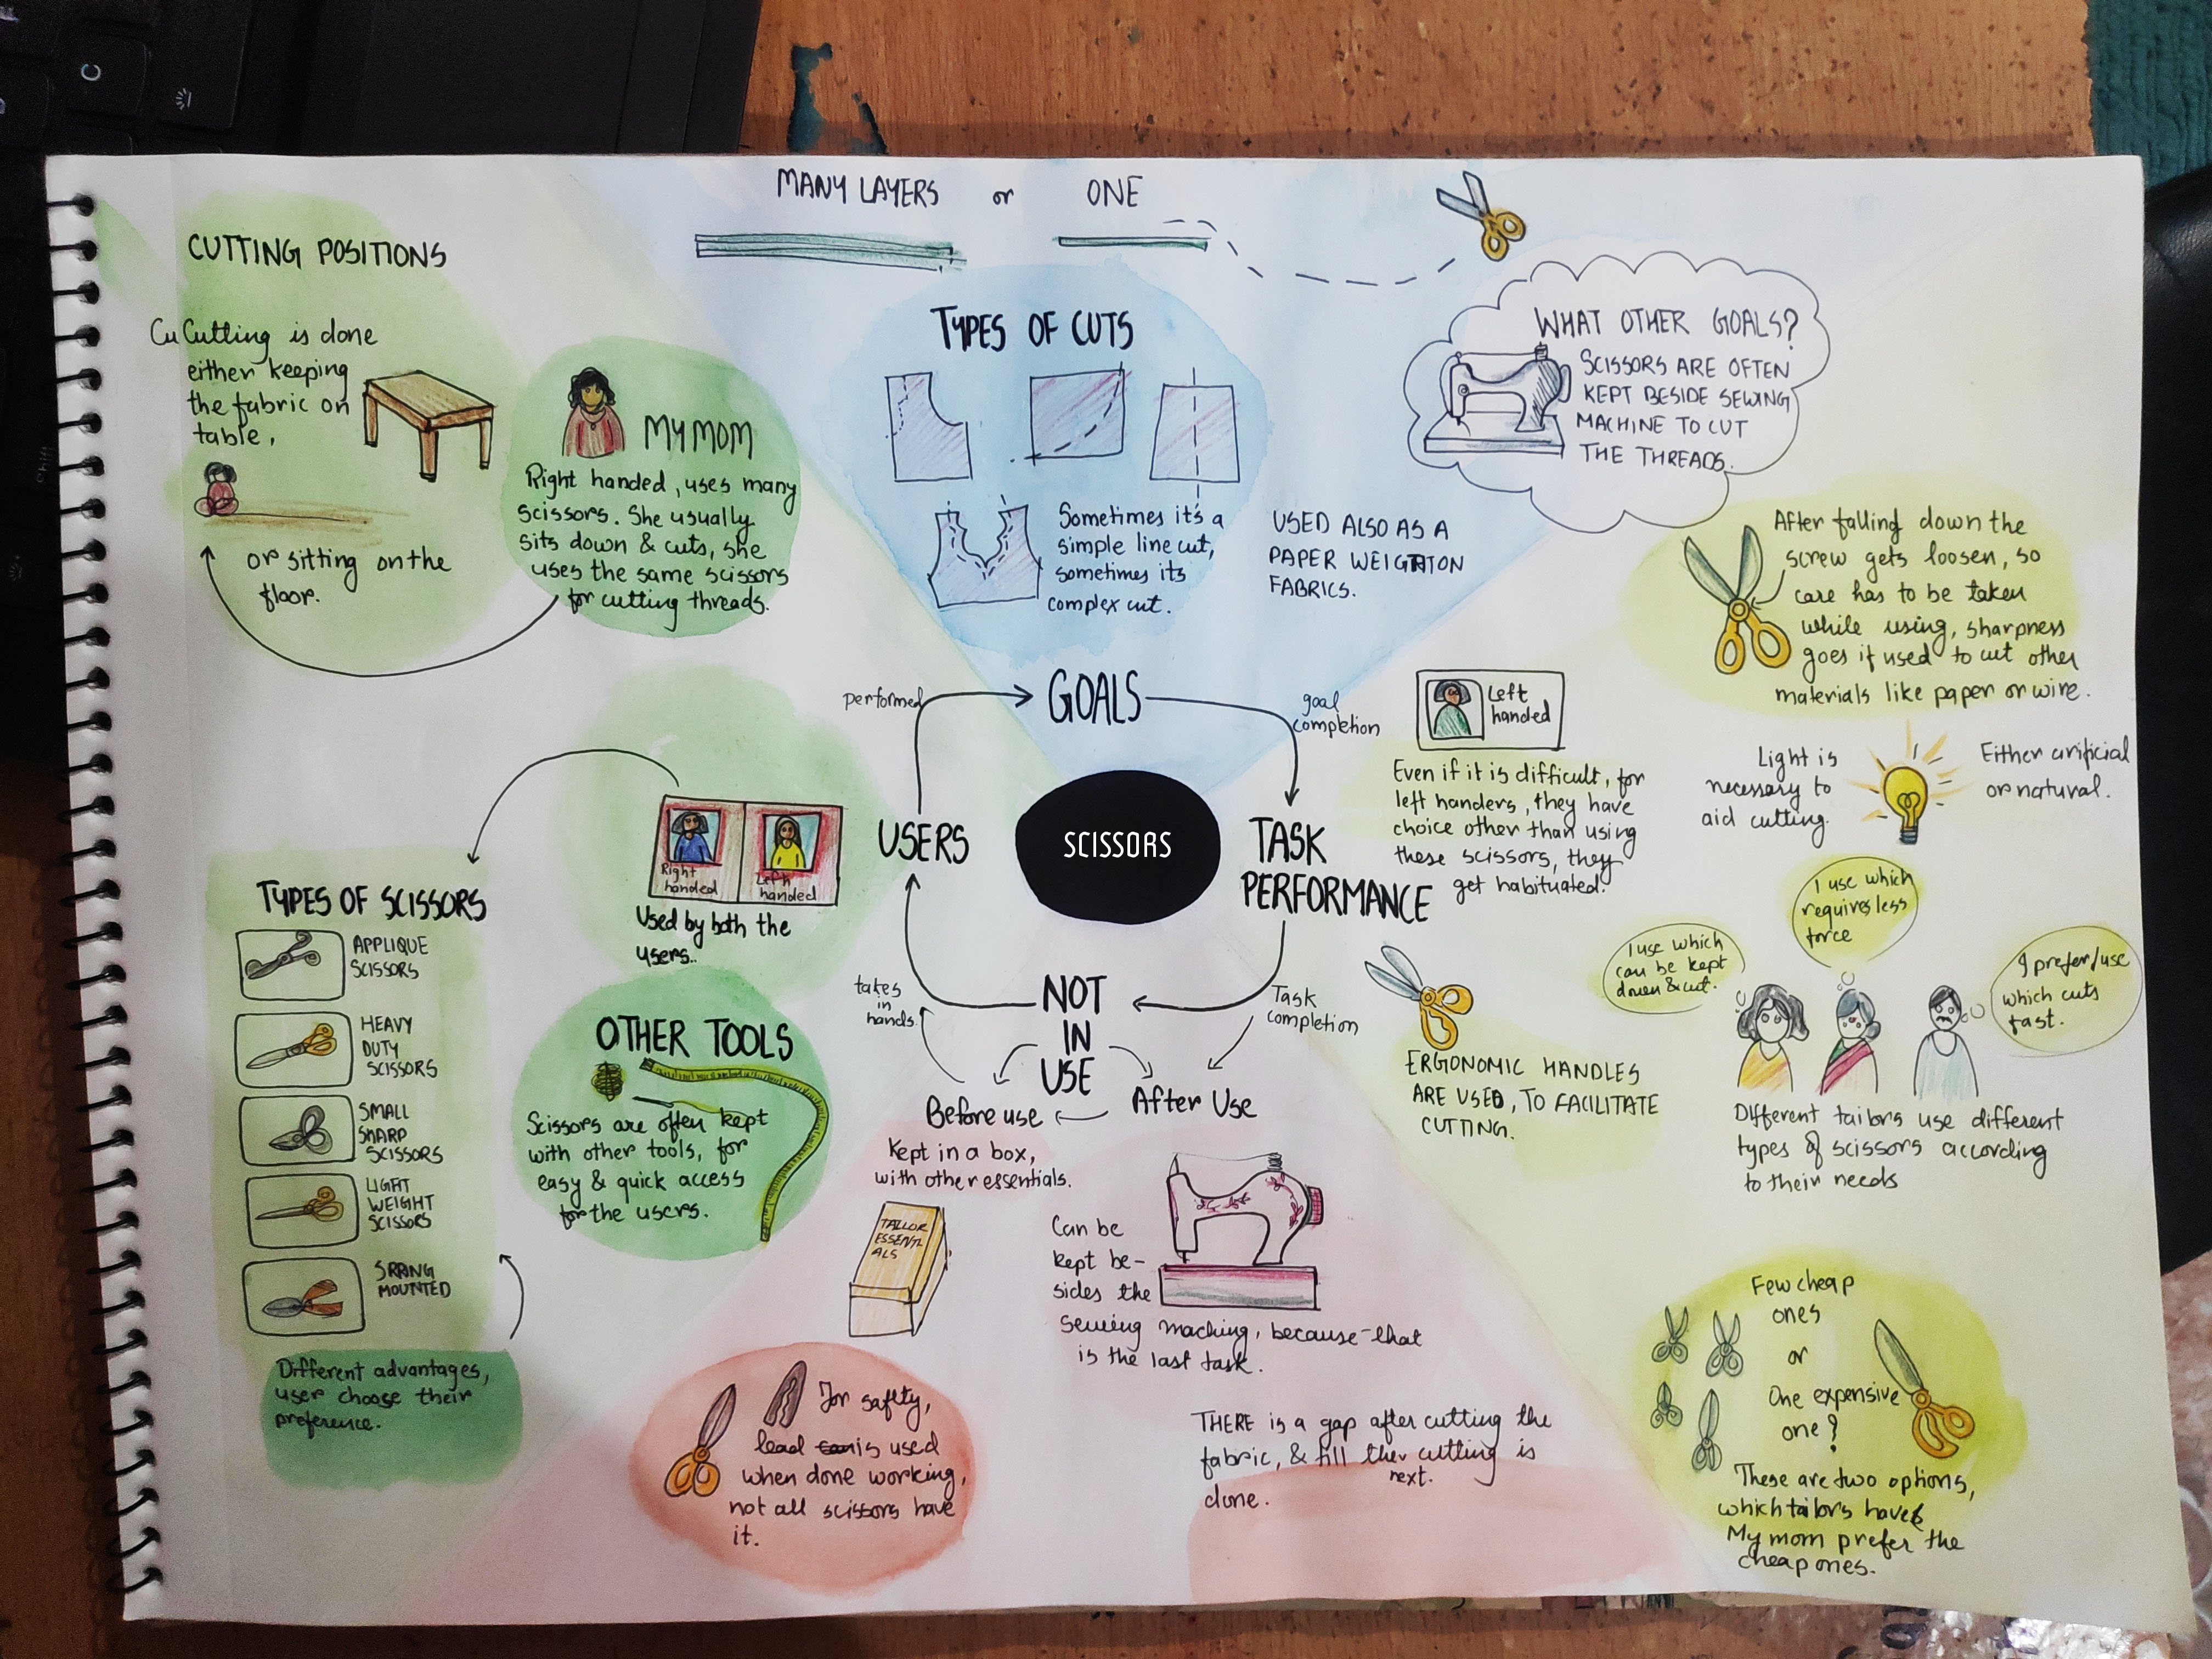 MANY LAYERS or ONE
CUTTING POSITIONS
Cu Cutting is done
either keeping
the fabric on
table,
or sitting on the
floor.
MY MOM
Right handed, uses many
scissors. She usually
sits down & cuts, she
uses the same scissors
for cutting threads.
TYPES OF CUTS
Sometimes it's a
simple line cut,
sometimes its
complex cut.
WHAT OTHER GOALS?
SCISSORS ARE OFTEN
KEPT BESIDE SEWING
MACHINE TO CUT
THE THREADS.
USED ALSO AS A
PAPER WEIGHT ON
FABRICS.
After falling down the
screw gets loosen, so
care has to be taken
while using, sharpness
goes if used to cut other
materials like paper or wire.
performed
GOALS
goal
completion
USERS
SCISSORS
TASK
PERFORMANCE
takes
in
hands.
NOT
IN
USE
Task
completion
Before use
After Use
Left
handed
Even if it is difficult, for
left handers, they have
choice other than using
these scissors, they
get habituated.
Light is
necessary to
aid cutting.
Either arificial
or natural.
Right
handed
Left
handed
Used by both the
users..
TYPES OF SCISSORS
APPLIQUE
SCISSORS
HEAVY
DUTY
SCISSORS
SMALL
SHARP
SCISSORS
LIGHT
WEIGHT
SCISSORS
SPRING
MOUNTED
Different advantages,
user choose their
preference.
OTHER TOOLS
Scissors are often kept
with other tools, for
easy & quick access
for the users.
Kept in a box,
with other essentials.
TAILOR
ESSENTI
ALS
Can be
kept be-
sides the
sewing maching, because that
is the last task.
For safety,
lead is used
when done working,
not all scissors have
it.
THERE is a gap after cutting the
fabric, & till the next cutting is
done.
ERGONOMIC HANDLES
ARE USED, TO FACILITATE
CUTTING.
I use which
can be kept
down & cut.
I use which
requires less
force
I prefer/use
which cuts
fast.
Different tailors use different
types of scissors according
to their needs
Few cheap
ones
or
One expensive
one?
These are two options,
which tailors have
My mom prefer the
cheap ones.